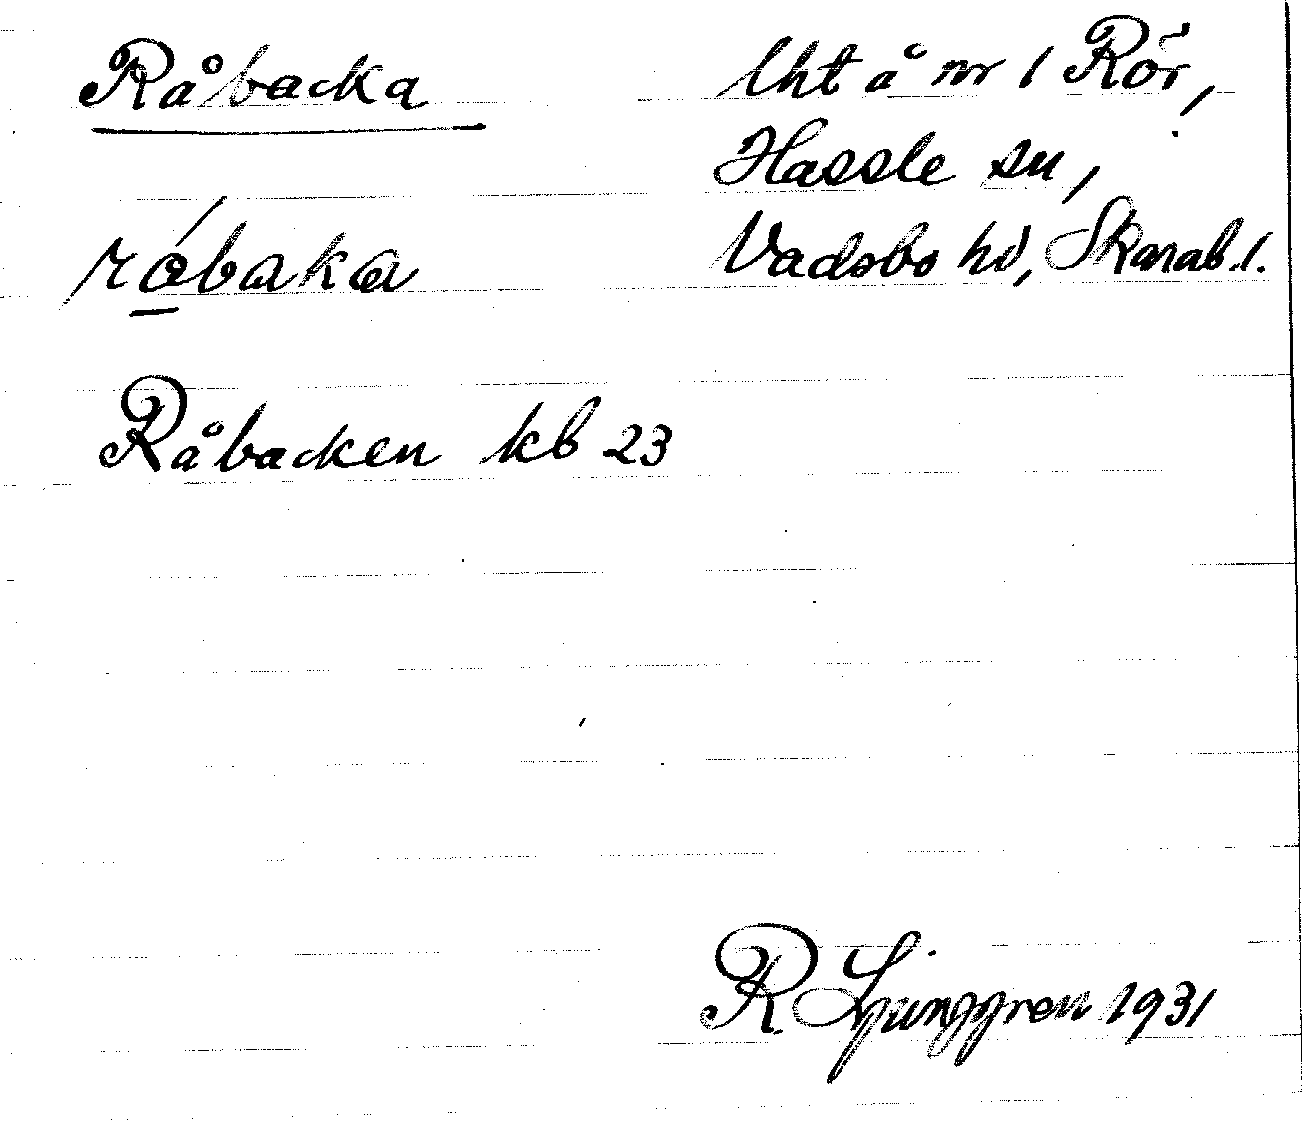 Råbacka
lht å nr 1 Rör,
Hassle sn,
Vadsbo hd, Skarab. l.
róbaka
Råbacken kb 23
R Ljunggren 1931